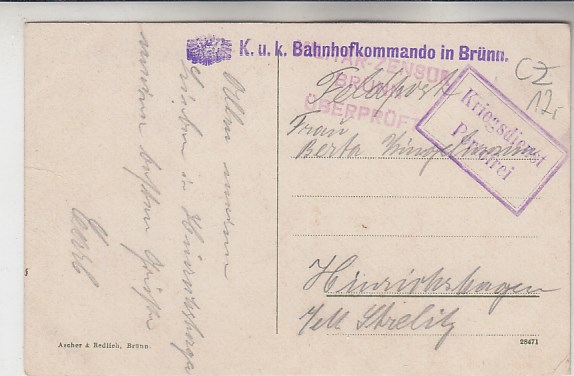 K. u. k. Bahnhofkommando in Brünn.
MILITÄR-ZENSUR
BRÜNN
ÜBERPRÜFT
Kriegsdienst
Portofrei
CZ
12,-
Feldpost
Frau
Berta
Hinrichshagen
Strelitz
Allen meinen
Lieben in Hinrichshagen
meine besten Grüße
Carl
Ascher & Redlich, Brünn.
28471